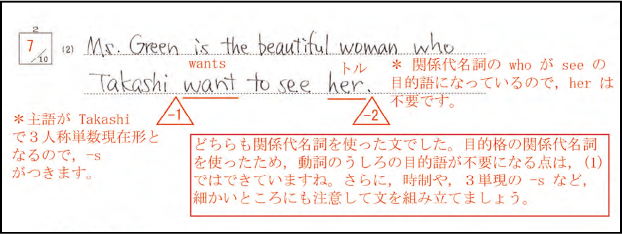 2
7/10
(2) Ms. Green is the beautiful woman who
wants
Takashi want to see her.
トル
-1
-2
*関係代名詞の who が see の
目的語になっているので，her は
不要です。
*主語が Takashi
で３人称単数現在形と
なるので，-s
がつきます。
どちらも関係代名詞を使った文でした。目的格の関係代名詞
を使ったため，動詞のうしろの目的語が不要になる点は，(1)
ではできていますね。さらに，時制や，３単現の -s など，
細かいところにも注意して文を組み立てましょう。